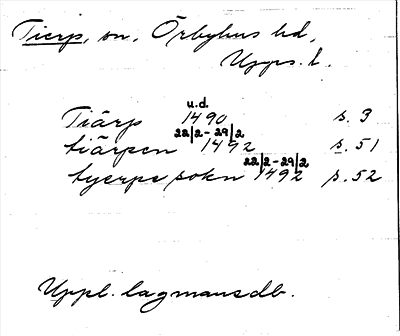 Tierp, sn, Örbyhus hd,
Upps. l.
u.d.
Tiärp 1490 s. 3
22/2-29/2
tiärpen 1492 s. 51
22/2-29/2
tyerps sokn 1492 s. 52
Uppl. lagmansdb.